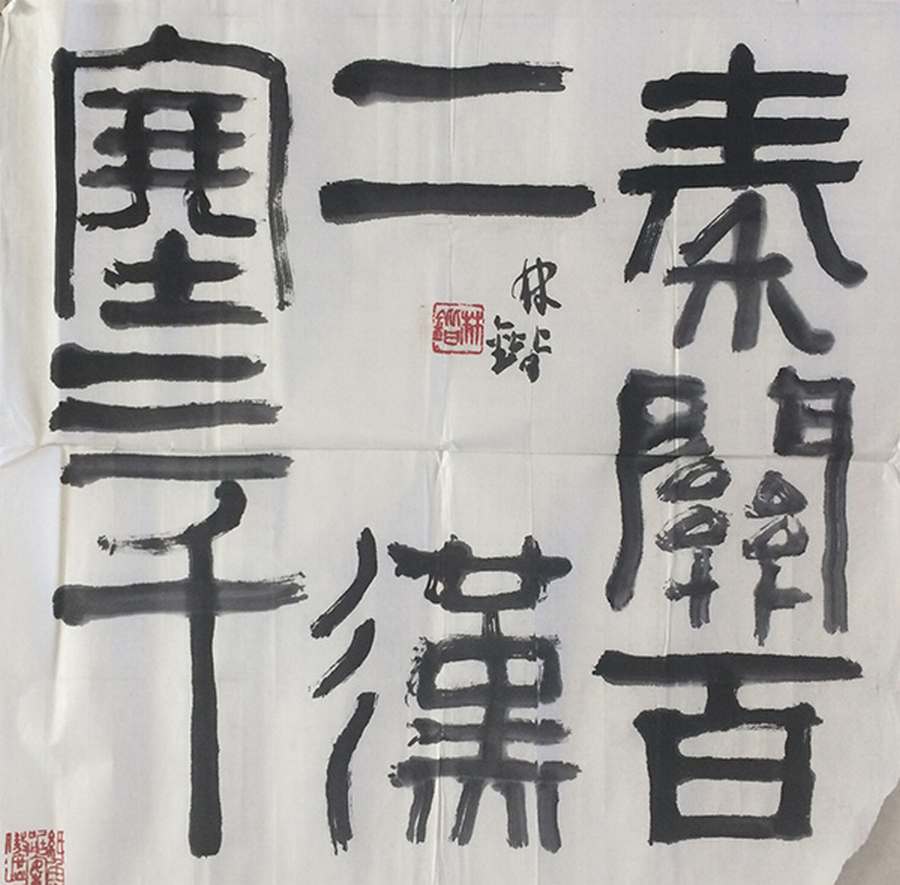 秦關百
二漢
塞三千
林鍇
林鍇